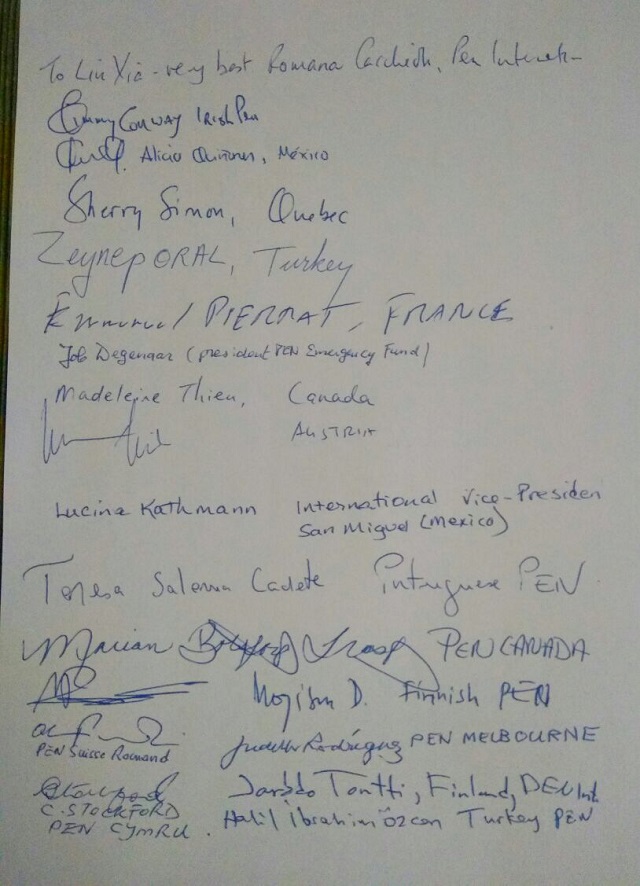 To Liu Xia - very best Romana Cacchioli, Pen Internat-
Conway Irish Pen
Alicia Quiñones, México
Sherry Simon, Quebec
Zeynep ORAL, Turkey
Emmanuel PIERRAT, FRANCE
Job Degenaar (president PEN Emergency Fund)
Madeleine Thien, Canada
AUSTRIA
Lucina Kathmann International Vice-Presiden
San Miguel (Mexico)
Teresa Salema Cadete Portuguese PEN
Marian PEN CANADA
D. Finnish PEN
PEN Suisse Romand
Judith Rodriguez PEN MELBOURNE
Jarkko Tontti, Finland, PEN Int
C. STOCKFORD
PEN CYMRU.
Halil İbrahim Özcan Turkey PEN